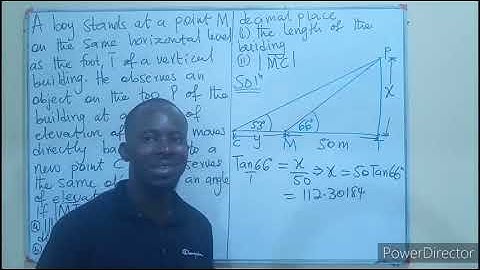 A boy stands at a point M
on the same horizontal level
as the foot, T of a vertical
building. He observes an
object on the top P of the
building at a of
elevation of moves
directly ba to a
new point C serves
the same o an angle
of eleva
If |MT
decimal place
(i) the length of the
building
(ii) |MC|
Soln
P
x
53°
66°
C y M 50m T
Tan66° = x/50 ⇒ x = 50Tan66°
1
= 112.30184
PowerDirector